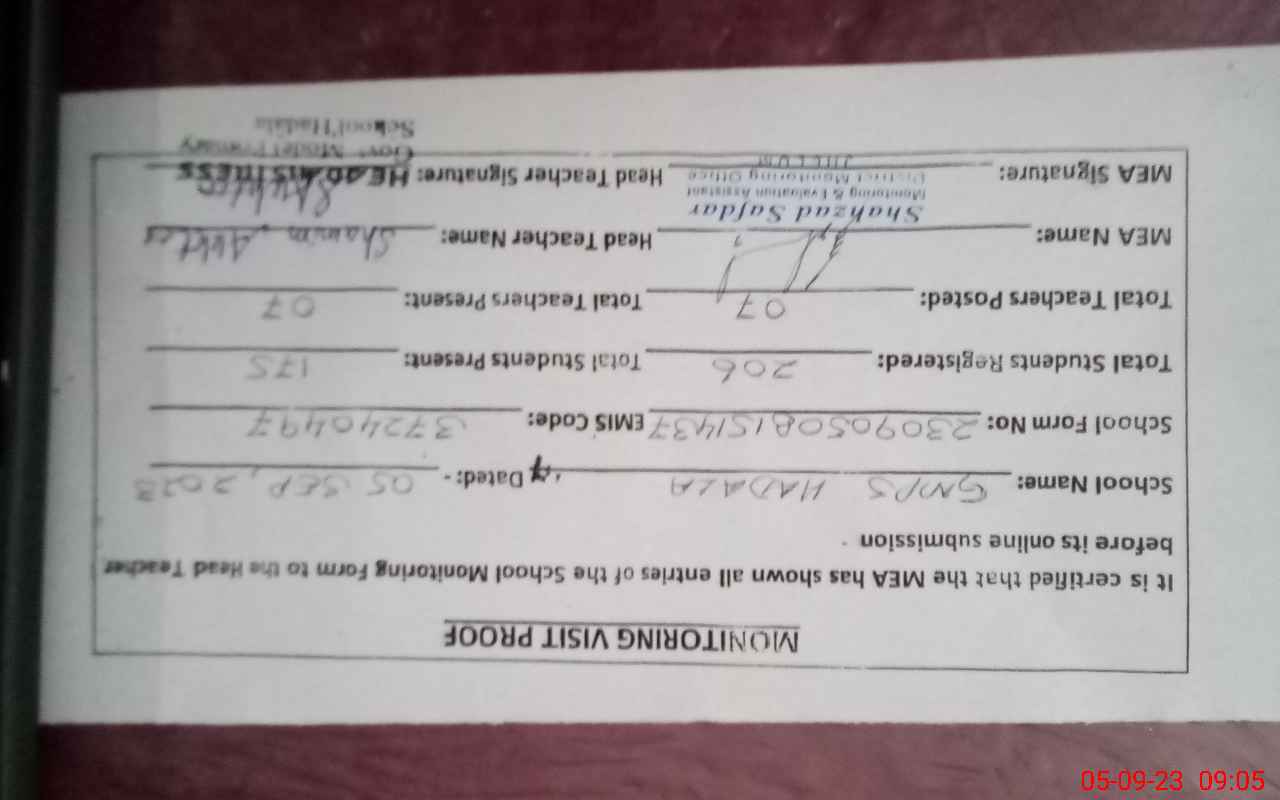 MONITORING VISIT PROOF
It is certified that the MEA has shown all entries of the School Monitoring Form to the Head Teacher
before its online submission
School Name: GMPS HADALA Dated: - 05 SEP, 2023
School Form No: 23090508151437 EMIS Code: 37240497
Total Students Registered: 206 Total Students Present: 175
Total Teachers Posted: 07 Total Teachers Present: 07
MEA Name: Head Teacher Name: Shamim Akhter
Shahzad Safdar
Monitoring & Evaluation Assistant
District Monitoring Office
JHELUM
MEA Signature: Head Teacher Signature: HEADMISTRESS
Govt Model Primary
School Hadala
05-09-23 09:05